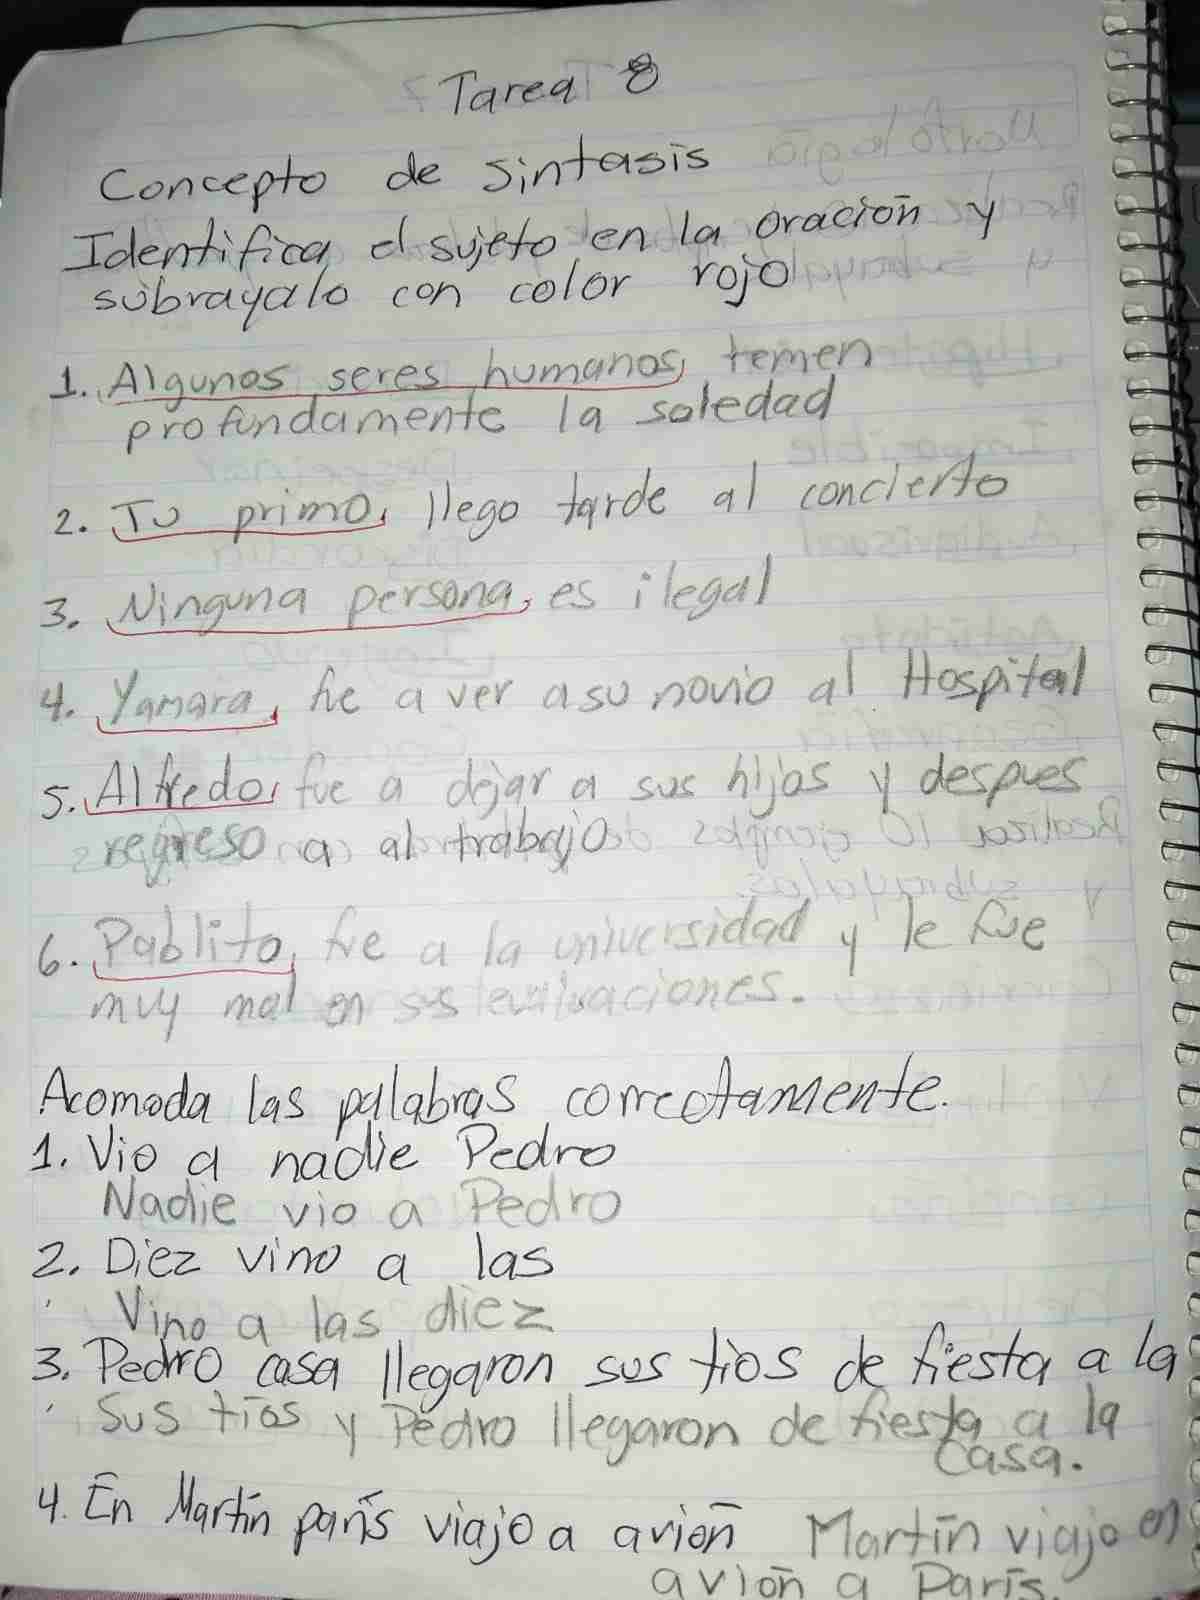 Tarea 8
Concepto de sintasis
Identifica el sujeto en la oración y
subrayalo con color rojo
1. Algunos seres humanos, temen
profundamente la soledad
2. Tu primo, llego tarde al concierto
3. Ninguna persona, es ilegal
4. Yamara, fue a ver a su novio al Hospital
5. Alfredo, fue a dejar a sus hijos y despues
regreso a al trabajo
6. Pablito, fue a la universidad y le fue
muy mal en sus evaluaciones.
Acomoda las palabras correctamente.
1. Vio a nadie Pedro
Nadie vio a Pedro
2. Diez vino a las
Vino a las diez
3. Pedro casa llegaron sus tios de fiesta a la
Sus tíos y Pedro llegaron de fiesta a la
casa.
4. En Martín parís viajo a avión Martín viajo en
avión a París.